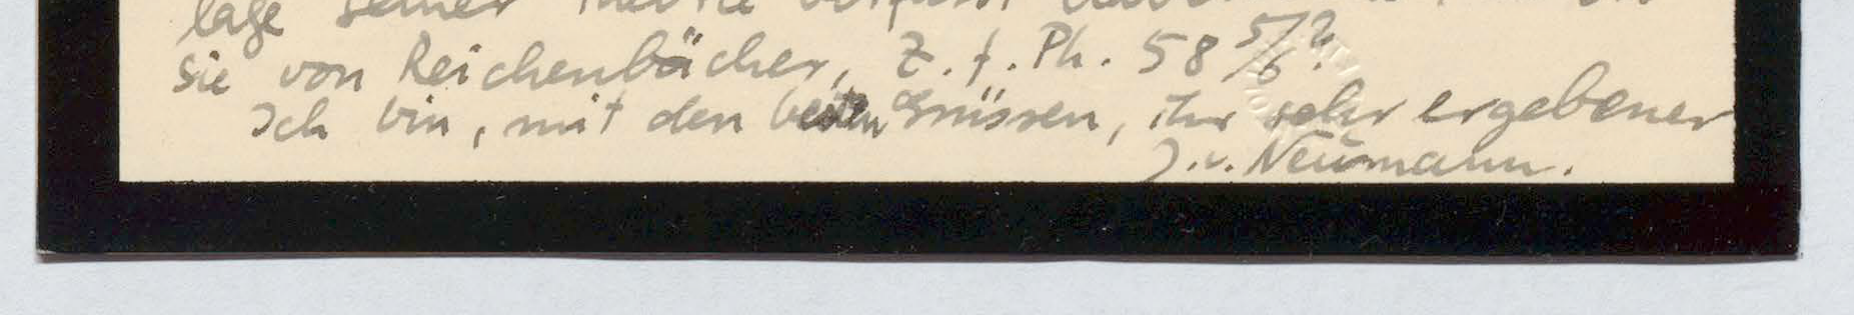 lage seiner Theorie verfasst
sie von Reichenbächer, Z. f. Ph. 58 5/6?
Ich bin, mit den besten Grüssen, Ihr sehr ergebener
J. v. Neumann.